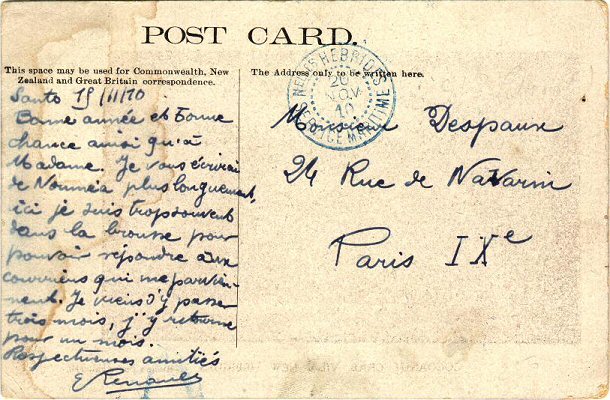 POST CARD.
This space may be used for Commonwealth, New
Zealand and Great Britain correspondence.
The Address only to be written here.
NELLES HEBRIDES
20
NOV
10
SERVICE MARITIME
Santo 19/11/10
Bonne année et bonne
chance ainsi qu'à
Madame. Je vous écrirai
de Nouméa plus longuement,
ici je suis trop souvent
dans la brousse pour
pouvoir répondre aux
courriers qui me parvien-
nent. Je viens d'y passer
trois mois, j'y retourne
pour un mois.
Respectueuses amitiés
E Renault
Monsieur Despaux
24 Rue de Navarin
Paris IXe